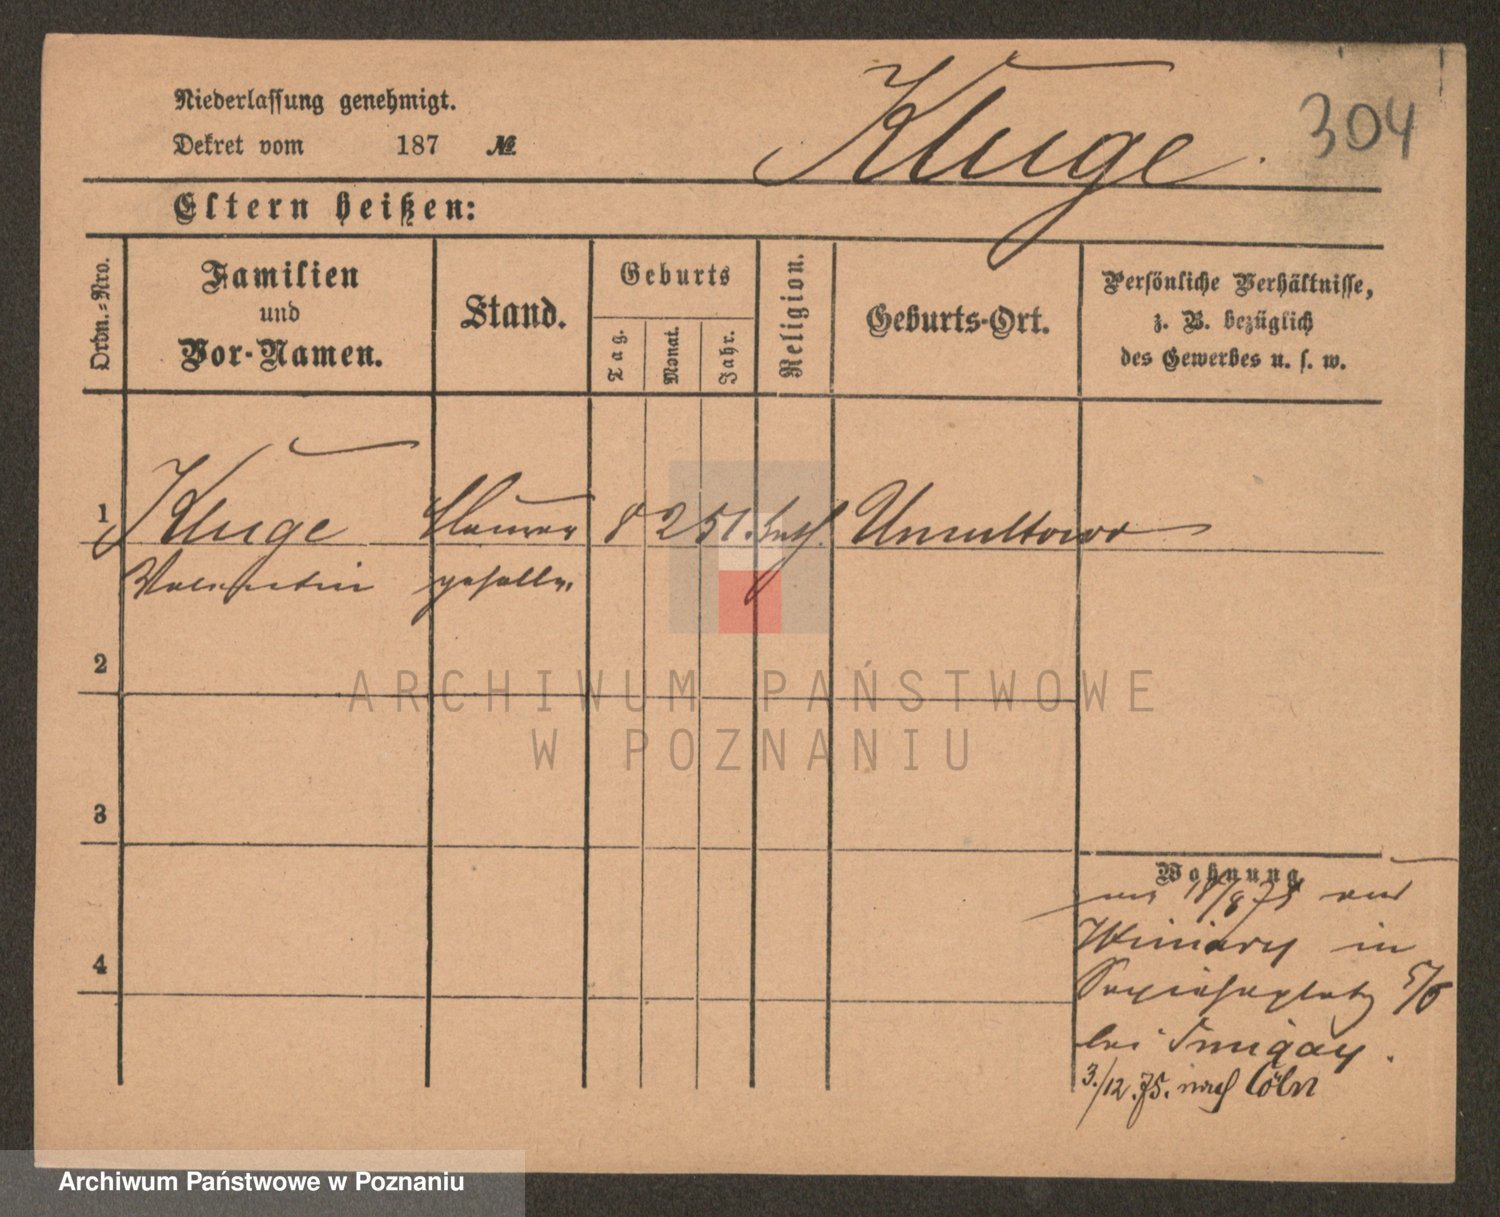 Niederlassung genehmigt.
Dekret vom 187 №
Kluge.
304
Eltern heißen:
Ordn.-Nro.
Familien
und
Vor-Namen.
Stand.
Geburts
Tag.
Monat.
Jahr.
Religion.
Geburts-Ort.
Persönliche Verhältnisse,
z. B. bezüglich
des Gewerbes u. s. w.
1 Kluge Maurer 8 2 51. kath. Umultowo
Valentin geselle.
2
3
4
Wohnung
18/8 75 aus
Winiary in
Sapiehaplatz 5/6
bei
3./12.75. nach Cöln
ARCHIWUM PAŃSTWOWE
W POZNANIU
Archiwum Państwowe w Poznaniu